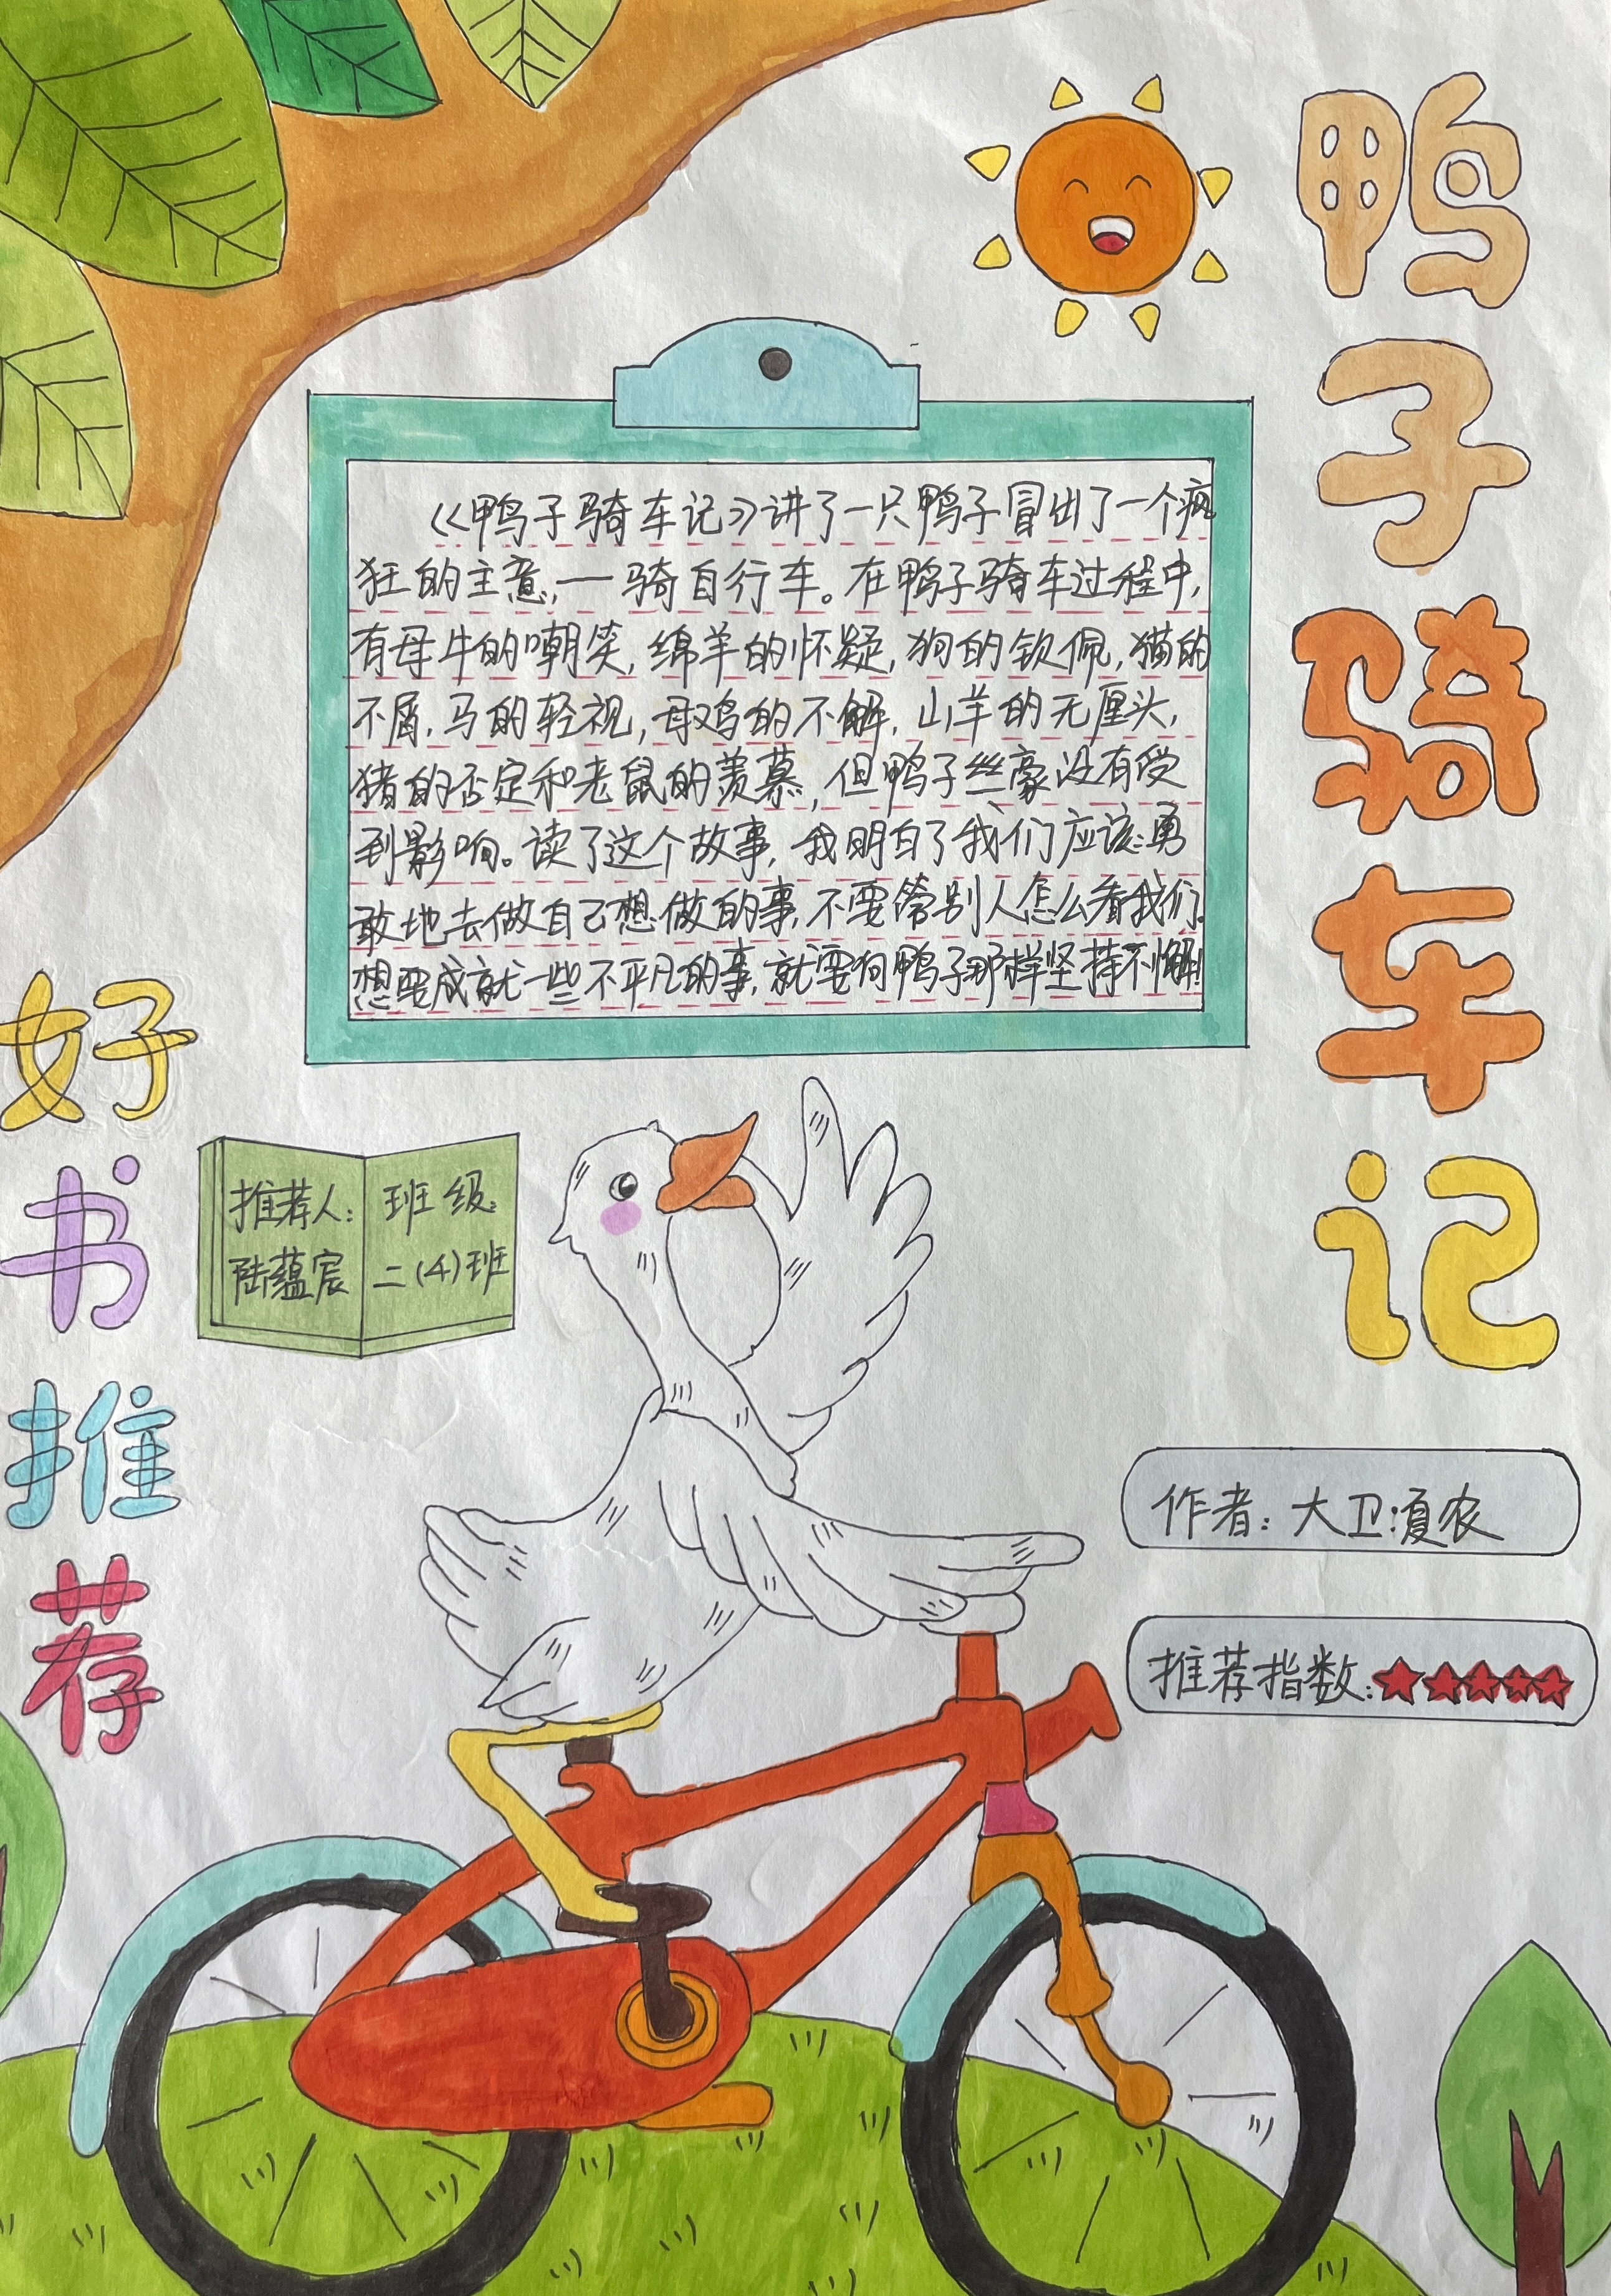 鸭子骑车记
《鸭子骑车记》讲了一只鸭子冒出了一个疯
狂的主意,一骑自行车。在鸭子骑车过程中,
有母牛的嘲笑,绵羊的怀疑,狗的钦佩,猫的
不屑,马的轻视,母鸡的不解,山羊的无厘头,
猪的否定和老鼠的羡慕,但鸭子丝豪没有受
到影响。读了这个故事,我明白了我们应该:勇
敢地去做自己想做的事,不要管别人怎么看我们。
想要成就一些不平凡的事,就要向鸭子那样坚持不懈!
好书推荐
推荐人:
陆蕴宸
班级:
二(4)班
作者:大卫·夏农
推荐指数:★★★★★